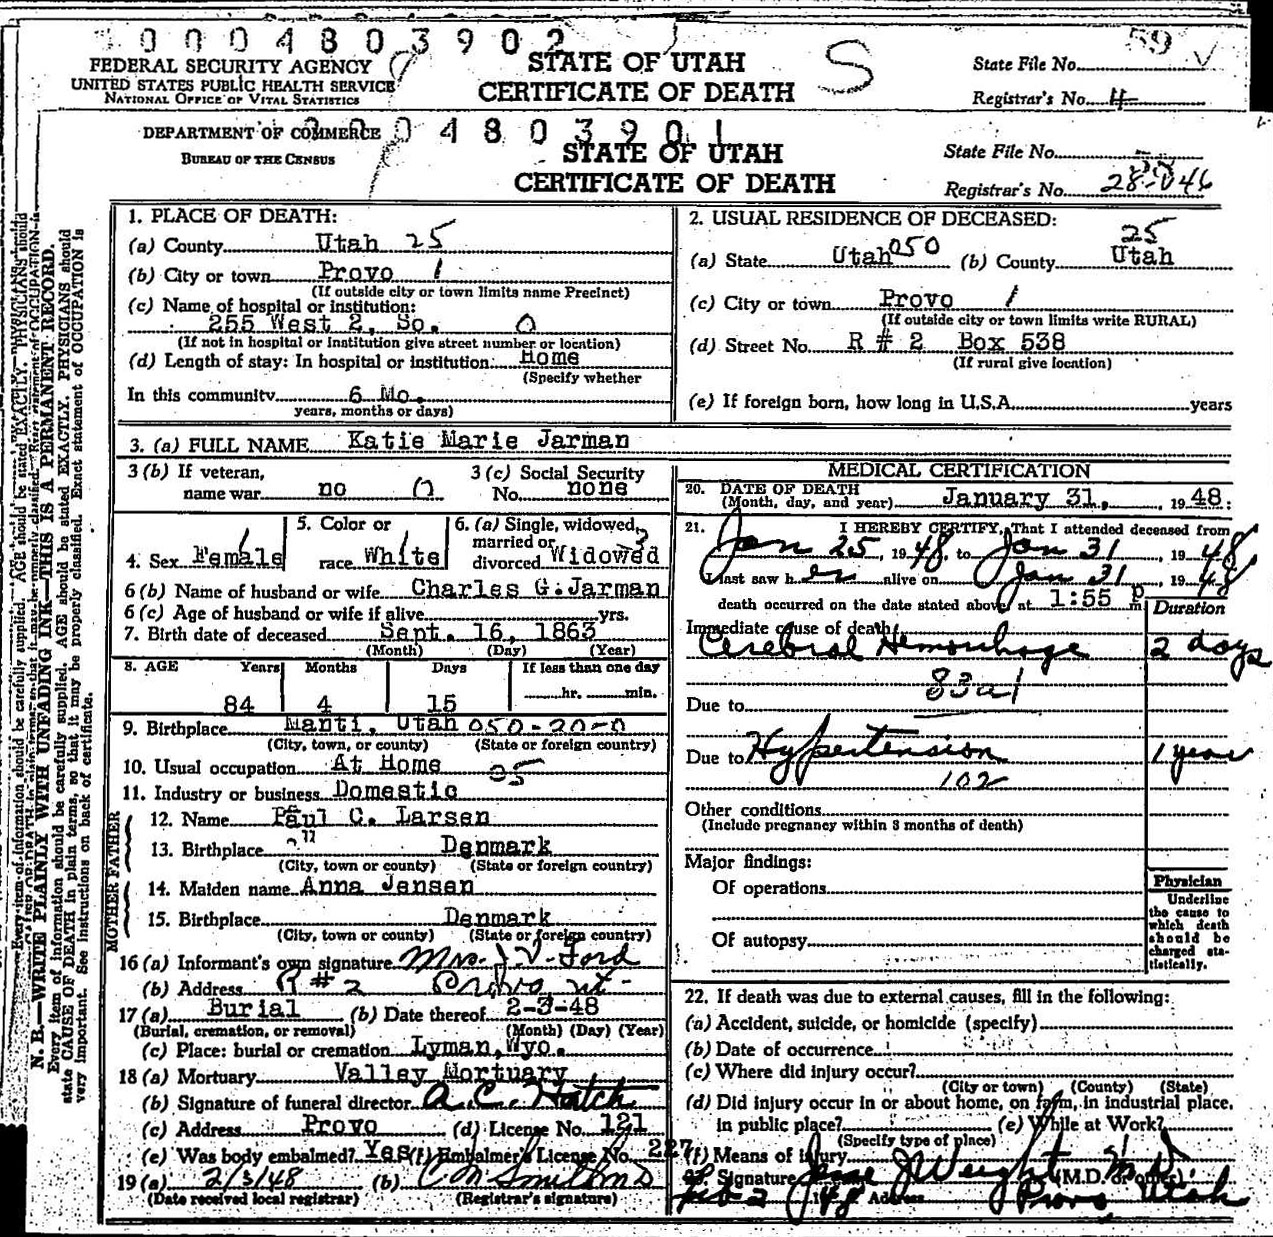 0004803902
FEDERAL SECURITY AGENCY
UNITED STATES PUBLIC HEALTH SERVICE
NATIONAL OFFICE OF VITAL STATISTICS
STATE OF UTAH
CERTIFICATE OF DEATH
S
State File No. 59
Registrar's No. 4
DEPARTMENT OF COMMERCE
BUREAU OF THE CENSUS
04803901
STATE OF UTAH
CERTIFICATE OF DEATH
State File No.
Registrar's No.
N. B.—WRITE PLAINLY WITH UNFADING INK—THIS IS A PERMANENT RECORD.
Every item of information should be carefully supplied. AGE should be stated EXACTLY. PHYSICIANS should
state CAUSE OF DEATH in plain terms, so that it may be properly classified. Exact statement of OCCUPATION is
very important. See instructions on back of certificate.
1. PLACE OF DEATH:
(a) County Utah 25
(b) City or town Provo 1
(If outside city or town limits name Precinct)
(c) Name of hospital or institution:
255 West 2, So. 0
(If not in hospital or institution give street number or location)
(d) Length of stay: In hospital or institution: Home
(Specify whether
In this community 6 Mo.
years, months or days)
2. USUAL RESIDENCE OF DECEASED:
(a) State Utah 050 (b) County Utah 25
(c) City or town Provo 1
(If outside city or town limits write RURAL)
(d) Street No. R # 2 Box 538
(If rural give location)
(e) If foreign born, how long in U.S.A. years
3. (a) FULL NAME Katie Marie Jarman
3 (b) If veteran,
name war no 0
3 (c) Social Security
No. none
4. Sex Female
5. Color or
race White
6. (a) Single, widowed,
married or
divorced Widowed
6 (b) Name of husband or wife Charles G. Jarman
6 (c) Age of husband or wife if alive yrs.
7. Birth date of deceased Sept. 16, 1863
(Month) (Day) (Year)
8. AGE Years Months Days If less than one day
84 4 15 hr. min.
9. Birthplace Manti, Utah 050-20-0
(City, town, or county) (State or foreign country)
10. Usual occupation At Home 95
11. Industry or business Domestic
FATHER
12. Name Paul C. Larsen
13. Birthplace Denmark
(City, town or county) (State or foreign country)
MOTHER
14. Maiden name Anna Jensen
15. Birthplace Denmark
(City, town or county) (State or foreign country)
16 (a) Informant's own signature Mrs. J. V. Ford
(b) Address R # 2 Provo, Ut-
17 (a) Burial (b) Date thereof 2-3-48
(Burial, cremation, or removal) (Month) (Day) (Year)
(c) Place: burial or cremation Lyman, Wyo.
18 (a) Mortuary Valley Mortuary
(b) Signature of funeral director A. C. Hatch
(c) Address Provo (d) License No. 121
(e) Was body embalmed? Yes (f) Embalmer's License No. 227
19 (a) 2/3/48 (b)
(Date received local registrar) (Registrar's signature)
MEDICAL CERTIFICATION
20. DATE OF DEATH
(Month, day, and year) January 31, 1948:
21. I HEREBY CERTIFY, That I attended deceased from
Jan 25, 1948, to Jan 31, 1948,
I last saw her alive on Jan 31, 1948
death occurred on the date stated above at 1:55 p m
Duration
Immediate cause of death
Cerebral Hemorrhage 2 days
83a1
Due to
Due to Hypertension 1 year
102
Other conditions
(Include pregnancy within 3 months of death)
Major findings:
Of operations
Of autopsy
Physician
Underline
the cause to
which death
should be
charged sta-
tistically.
22. If death was due to external causes, fill in the following:
(a) Accident, suicide, or homicide (specify)
(b) Date of occurrence
(c) Where did injury occur?
(City or town) (County) (State)
(d) Did injury occur in or about home, on farm, in industrial place,
in public place? (e) While at Work?
(Specify type of place)
(f) Means of injury
23. Signature Jesse J Weight M.D. (M.D. or other)
Feb 2 1948 Address Provo, Utah